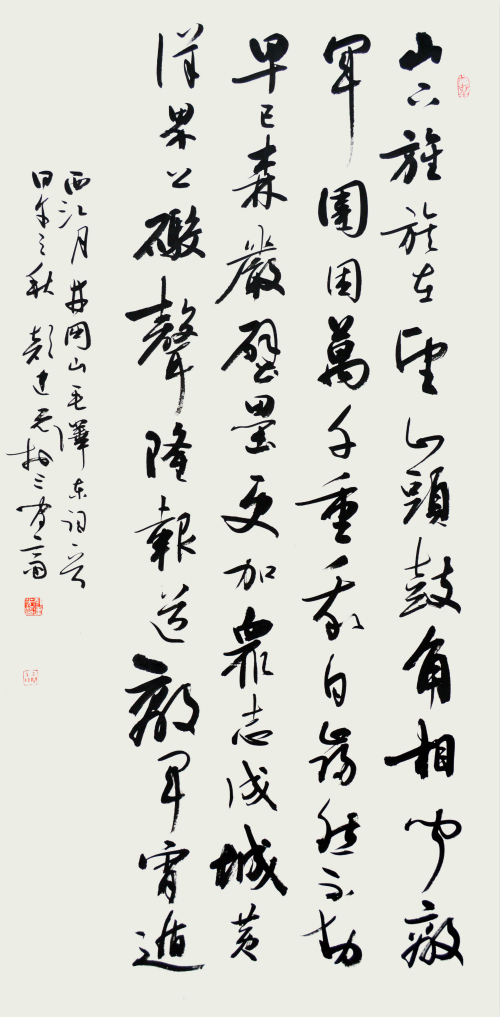 山下旌旗在望山頭鼓角相聞敵
軍圍困萬千重我自巋然不動
早已森嚴壁壘更加眾志成城黃
洋界上礮聲隆報道敵軍宵遁
西江月井岡山毛澤東詞一首
甲午之秋彭建